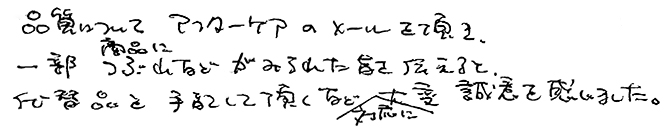 品質について アフターケアのメールを頂き、
一部商品につぶれなどがみられた旨を伝えると、
代替品を手配して頂くなど対応に大変誠意を感じました。